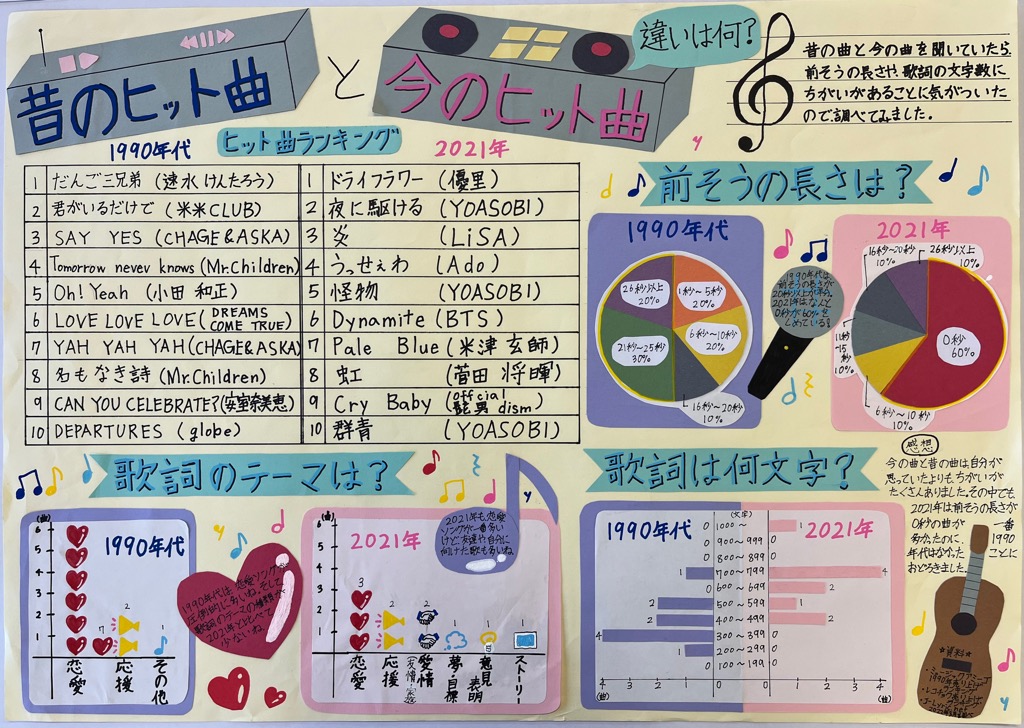 昔のヒット曲
と
今のヒット曲
違いは何?
昔の曲と今の曲を聞いていたら
前そうの長さや、歌詞の文字数に
ちがいがあることに気がついた
ので調べてみました。
ヒット曲ランキング
1990年代
1 だんご三兄弟 (速水けんたろう)
2 君がいるだけで (米米CLUB)
3 SAY YES (CHAGE&ASKA)
4 Tomorrow never knows (Mr.Children)
5 Oh!Yeah (小田 和正)
6 LOVE LOVE LOVE (DREAMS COME TRUE)
7 YAH YAH YAH (CHAGE&ASKA)
8 名もなき詩 (Mr.Children)
9 CAN YOU CELEBRATE? (安室奈美恵)
10 DEPARTURES (globe)
2021年
1 ドライフラワー (優里)
2 夜に駆ける (YOASOBI)
3 炎 (LiSA)
4 うっせぇわ (Ado)
5 怪物 (YOASOBI)
6 Dynamite (BTS)
7 Pale Blue (米津 玄師)
8 虹 (菅田 将暉)
9 Cry Baby (Official髭男dism)
10 群青 (YOASOBI)
前そうの長さは?
1990年代
26秒以上
20%
1秒~5秒
20%
6秒~10秒
20%
21秒~25秒
30%
16秒~20秒
10%
1990年代は、
前そうの長さが
20秒以上が
2021年は、なんと
0秒が60%を
しめている!
2021年
16秒~20秒
10%
26秒以上
10%
0秒
60%
11秒
~15
秒
10%
6秒~10秒
10%
歌詞のテーマは?
(曲)
6
5
4
3
2
1
1990年代
7
2
1
恋愛
応援
その他
1990年代は、恋愛ソングが
圧倒的に多いね。そして
歌詞のテーマの種類が
2021年と比べて
少ないね。
(曲)
6
5
4
3
2
1
2021年
3
2
2
1
1
1
恋愛
応援
愛情
(友情・家族)
夢・目標
意見表明
ストーリー
2021年も恋愛
ソングが一番多い
けど友達や自分に
向けた歌も多いね。
歌詞は何文字?
1990年代
(文字)
2021年
0 1000~ 1
0 900~999 0
0 800~899 0
1 700~799 4
0 600~699 2
2 500~599 1
2 400~499 2
4 300~399 0
1 200~299 0
0 100~199 0
4 3 2 1 0 0 1 2 3 4
(曲)
(曲)
感想
今の曲と昔の曲は自分が
思っていたよりも、ちがいが
たくさんありました。その中でも
2021年は前そうの長さが
0秒の曲が一番
多かったのに、1990
年代はなかったことに
おどろきました。
★資料★